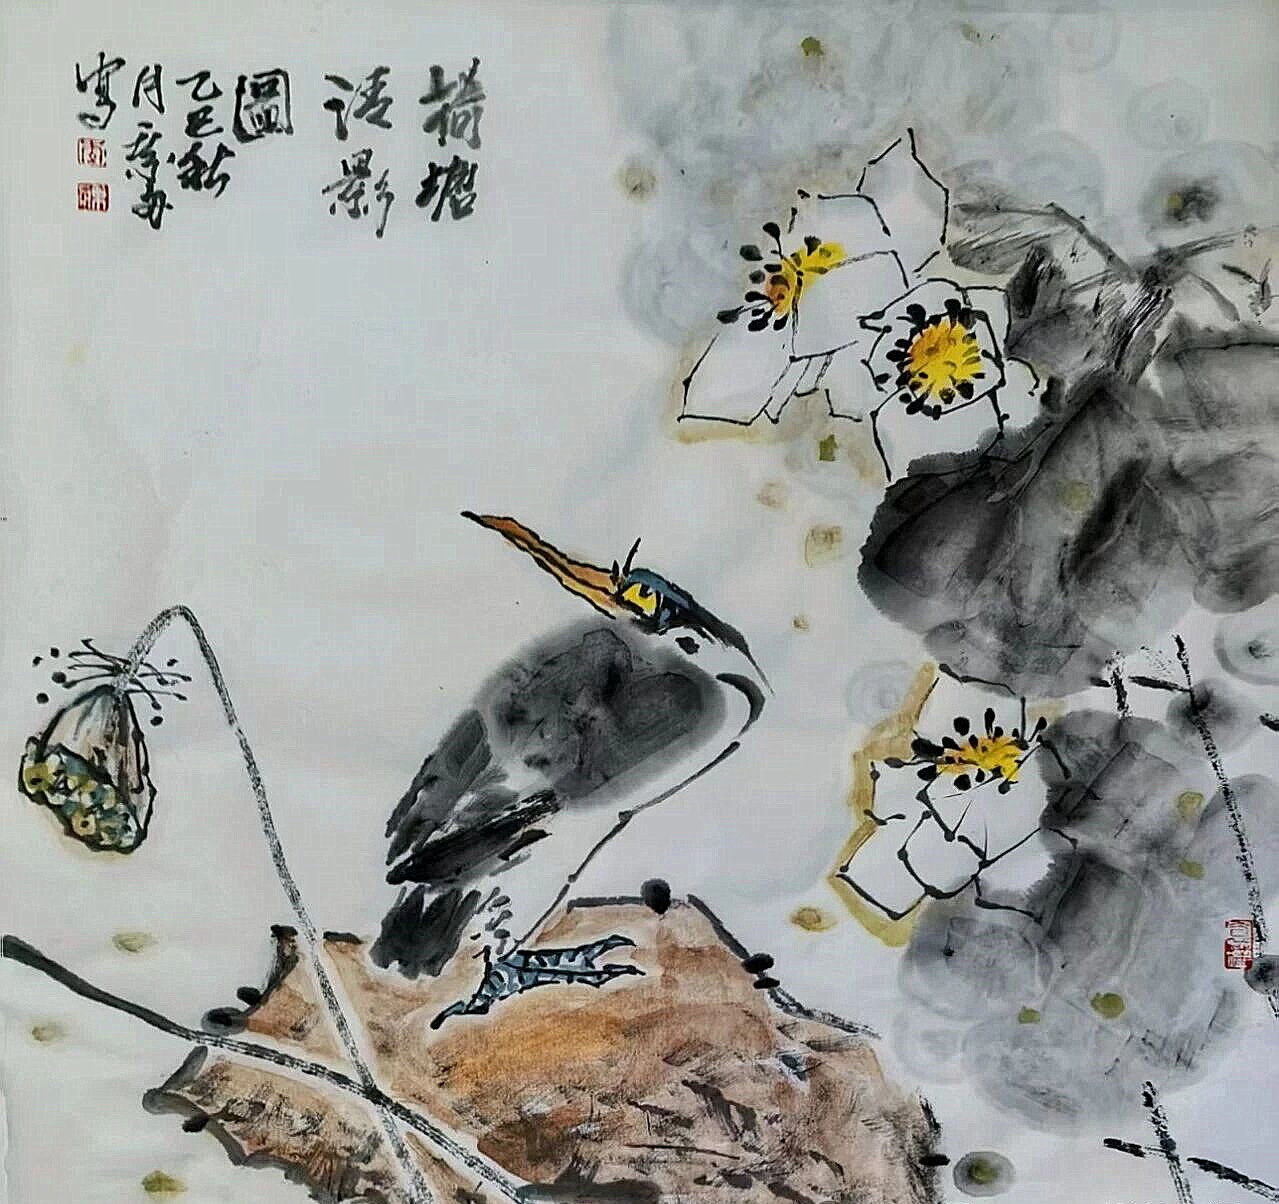 荷塘
清影
圖
乙巳秋
月
寫